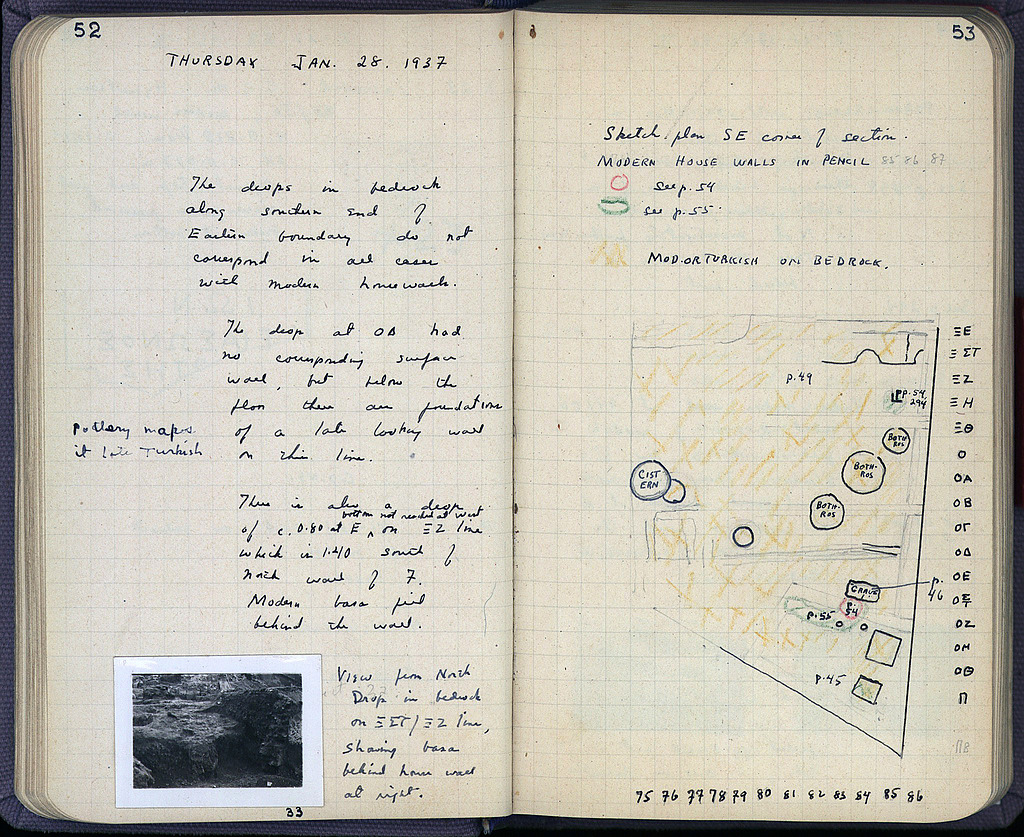 52
THURSDAY JAN. 28. 1937
The drops in bedrock
along southern end of
Eastern boundary do not
correspond in all cases
with modern house walls.
The drop at ΟΔ had
no corresponding surface
wall, but below the
floor there are foundations
of a late looking wall
on this line.
Pottery maps
it late Turkish.
There is also a drop
bottom not reached at west
of c. 0.80 at E ∧ on ΞΖ line
which is 1.40 south of
North wall of 7.
Modern basa fill
behind the wall.
View from North
Drop in bedrock
on ΞΣΤ/ΞΖ line,
showing basa
behind house wall
at right.
33
53
Sketch plan SE corner of section.
MODERN HOUSE WALLS IN PENCIL 85 86 87
see p. 54
see p. 55.
MOD. OR TURKISH ON BEDROCK.
ΞΕ
ΞΣΤ
ΞΖ
ΞΗ
ΞΘ
Ο
ΟΑ
ΟΒ
ΟΓ
ΟΔ
ΟΕ
ΟΣΤ
ΟΖ
ΟΗ
ΟΘ
Π
p. 49
p. 54,
294
BOTH-
ROS
BOTH-
ROS
BOTH-
ROS
CIST
ERN
GRAVE
p.
46
p.
54
p. 55
p. 45
75 76 77 78 79 80 81 82 83 84 85 86